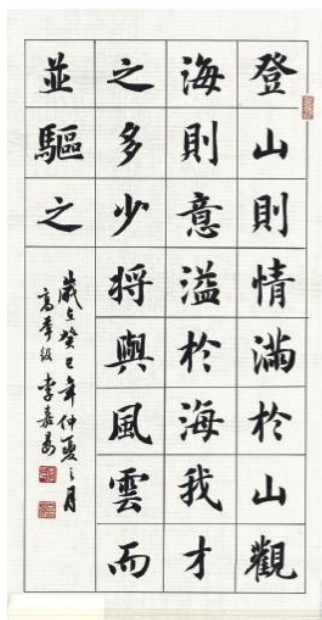 登山則情滿於山觀
海則意溢於海我才
之多少將與風雲而
並驅之
歲在癸巳年仲夏之月
高年级 李嘉